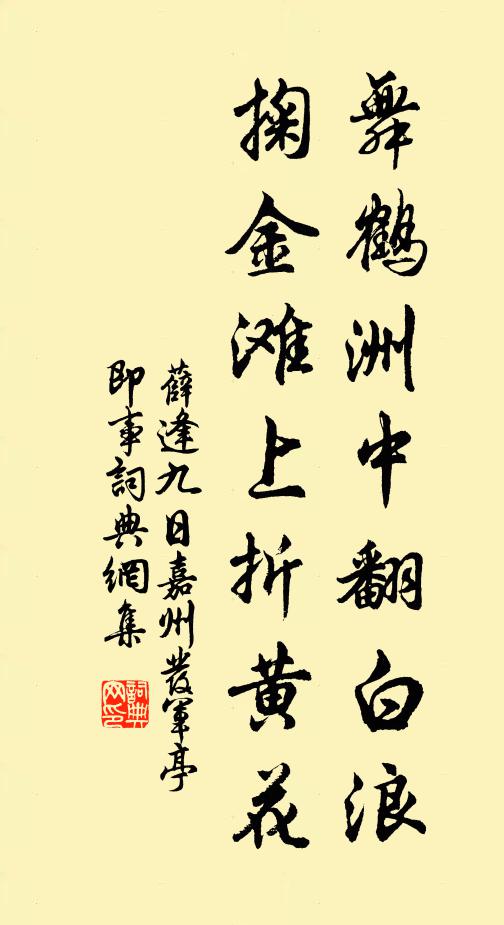 舞鶴洲中翻白浪
掬金滩上折黄花
薛逢九日嘉州發軍亭
即事詞典網集
詞典
网印